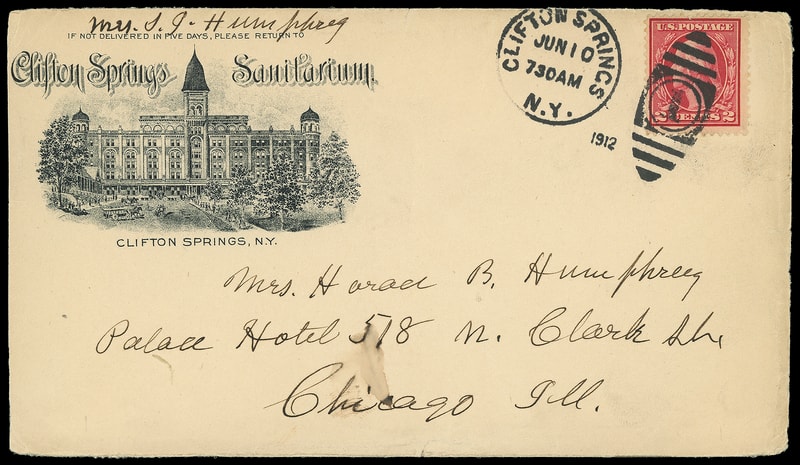 Mrs. S. J. Humphrey
IF NOT DELIVERED IN FIVE DAYS, PLEASE RETURN TO
Clifton Springs Sanitarium.
CLIFTON SPRINGS, N.Y.
CLIFTON SPRINGS
JUN 10
730AM
N.Y.
1912
U.S. POSTAGE
2 CENTS 2
Mrs. Horad B. Humphrey
Palace Hotel 518 N. Clark St.
Chicago Ill.